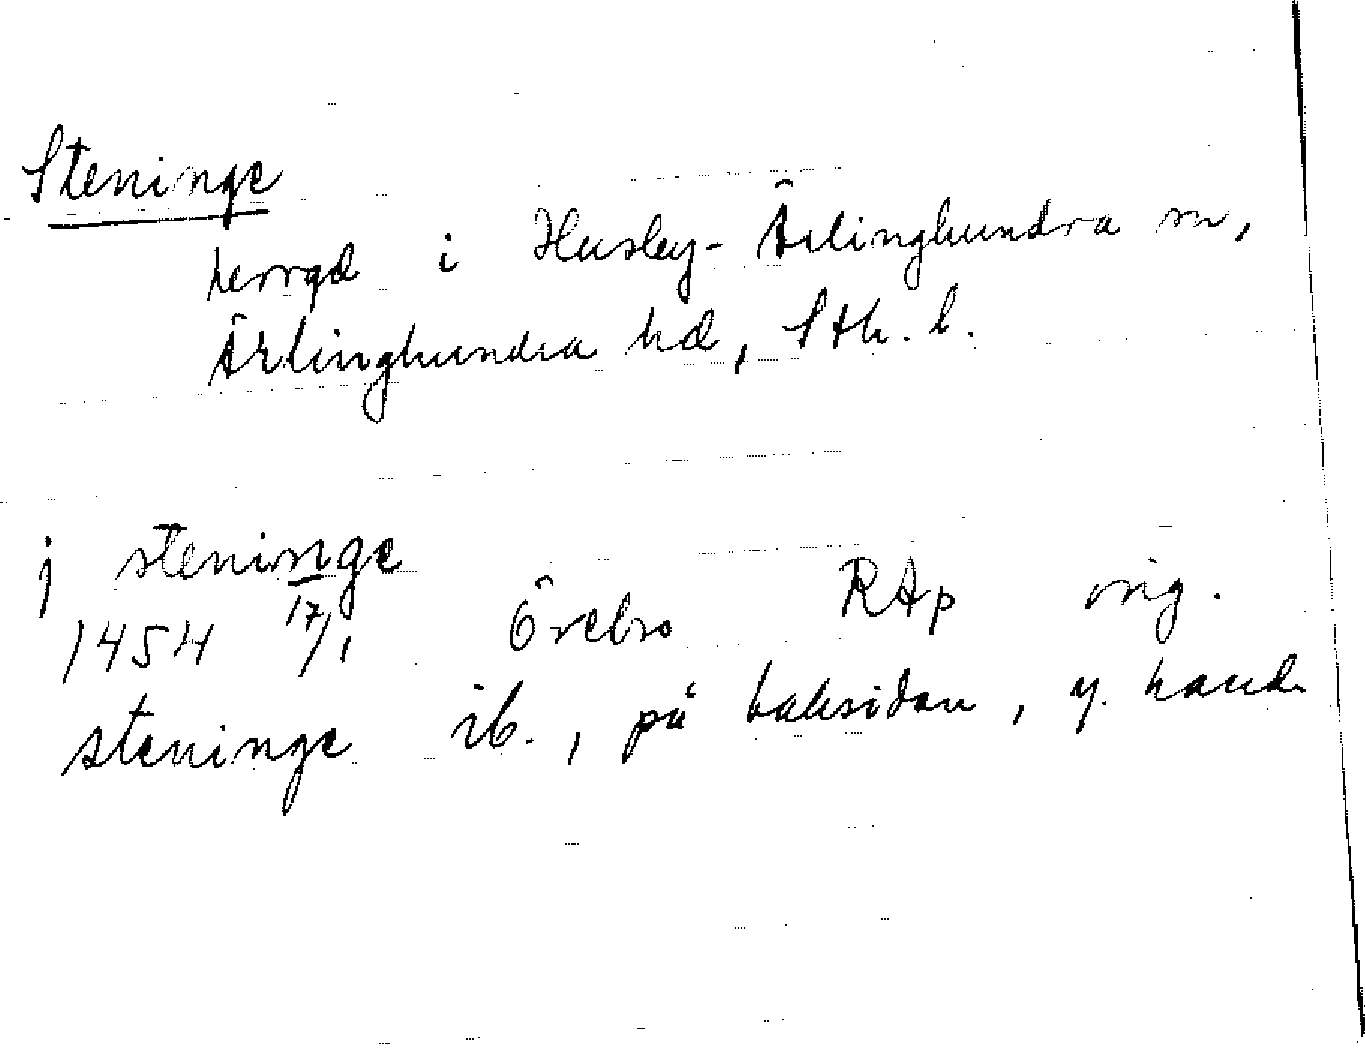 Steninge
herrgd i Husby-Ärlinghundra sn,
Ärlinghundra hd, Sth. l.
j steninge
1454 17/1 Örebro RAp orig.
steninge ib., på baksidan, y. hand.